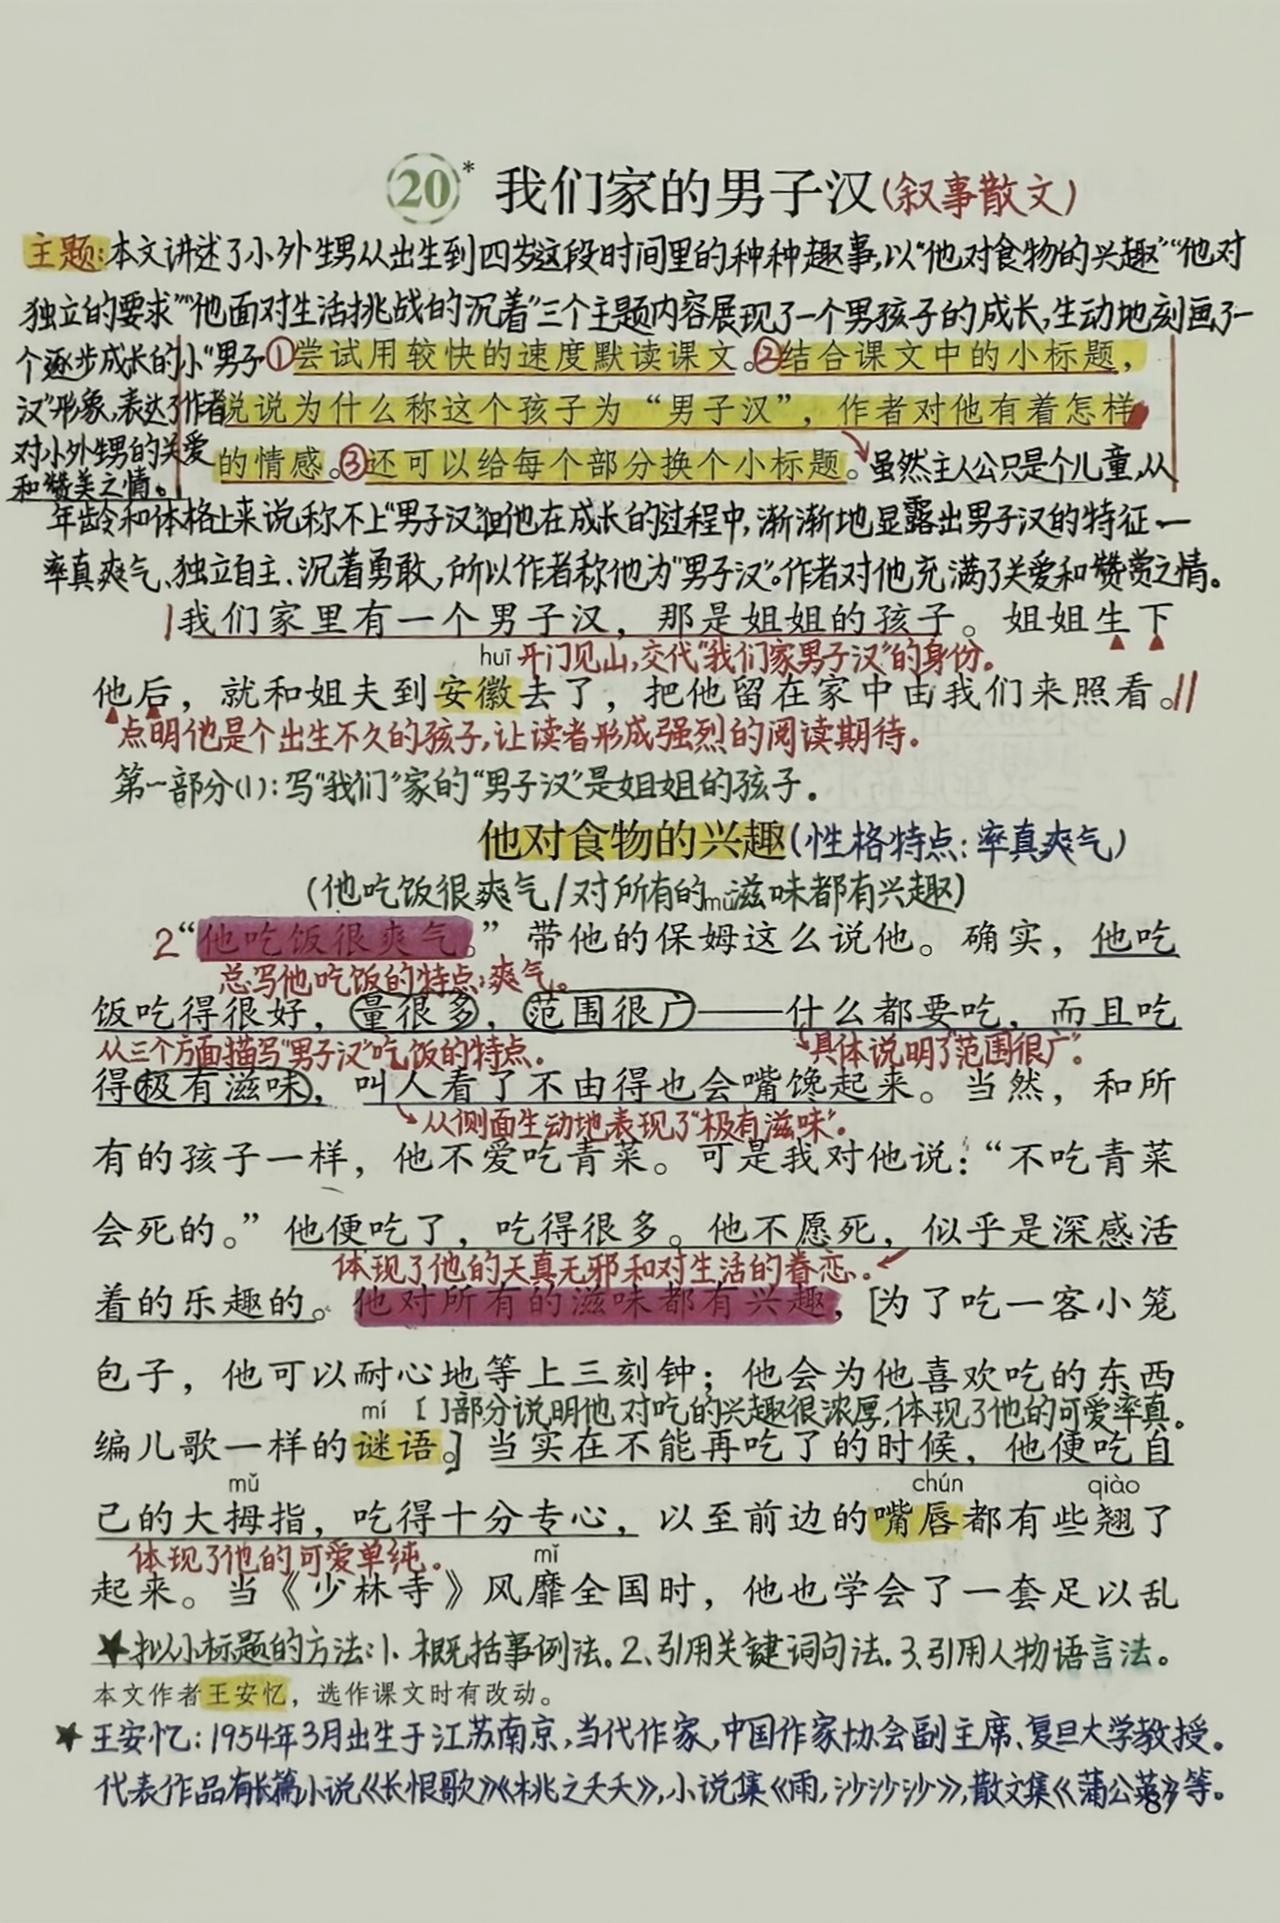 20* 我们家的男子汉(叙事散文)
主题:本文讲述了小外甥从出生到四岁这段时间里的种种趣事,以“他对食物的兴趣”“他对
独立的要求”“他面对生活挑战的沉着”三个主题内容展现了一个男孩子的成长,生动地刻画了一
个逐步成长的小“男子
汉”形象,表达了作者
对小外甥的关爱
和赞美之情。
①尝试用较快的速度默读课文。②结合课文中的小标题，
说说为什么称这个孩子为“男子汉”，作者对他有着怎样
的情感。③还可以给每个部分换个小标题。虽然主人公只是个儿童,从
年龄和体格上来说,称不上“男子汉”但他在成长的过程中,渐渐地显露出男子汉的特征一
率真爽气、独立自主、沉着勇敢,所以作者称他为“男子汉”。作者对他充满了关爱和赞赏之情。
1我们家里有一个男子汉，那是姐姐的孩子。姐姐生下
huī 开门见山,交代“我们家男子汉”的身份。
他后，就和姐夫到安徽去了，把他留在家中由我们来照看。//
点明他是个出生不久的孩子,让读者形成强烈的阅读期待。
第一部分(1):写“我们”家的“男子汉”是姐姐的孩子.
他对食物的兴趣(性格特点:率真爽气)
(他吃饭很爽气/对所有的滋味都有兴趣)
mǔ
2“他吃饭很爽气。”带他的保姆这么说他。确实，他吃
总写他吃饭的特点:爽气。
饭吃得很好，量很多，范围很广——什么都要吃，而且吃
从三个方面描写“男子汉”吃饭的特点. 具体说明了“范围很广”.
得极有滋味，叫人看了不由得也会嘴馋起来。当然，和所
从侧面生动地表现了“极有滋味”.
有的孩子一样，他不爱吃青菜。可是我对他说：“不吃青菜
会死的。”他便吃了，吃得很多。他不愿死，似乎是深感活
体现了他的天真无邪和对生活的眷恋.
着的乐趣的。他对所有的滋味都有兴趣，[为了吃一客小笼
包子，他可以耐心地等上三刻钟；他会为他喜欢吃的东西
mí []部分说明他对吃的兴趣很浓厚,体现了他的可爱率真.
编儿歌一样的谜语。]当实在不能再吃了的时候，他便吃自
mǔ chún qiào
己的大拇指，吃得十分专心，以至前边的嘴唇都有些翘了
体现了他的可爱单纯. mǐ
起来。当《少林寺》风靡全国时，他也学会了一套足以乱
★拟小标题的方法:1.概括事例法。2.引用关键词句法.3.引用人物语言法。
本文作者王安忆，选作课文时有改动。
★王安忆:1954年3月出生于江苏南京,当代作家,中国作家协会副主席、复旦大学教授.
代表作品有长篇小说《长恨歌》《桃之夭夭》,小说集《雨,沙沙沙》,散文集《蒲公英》等.